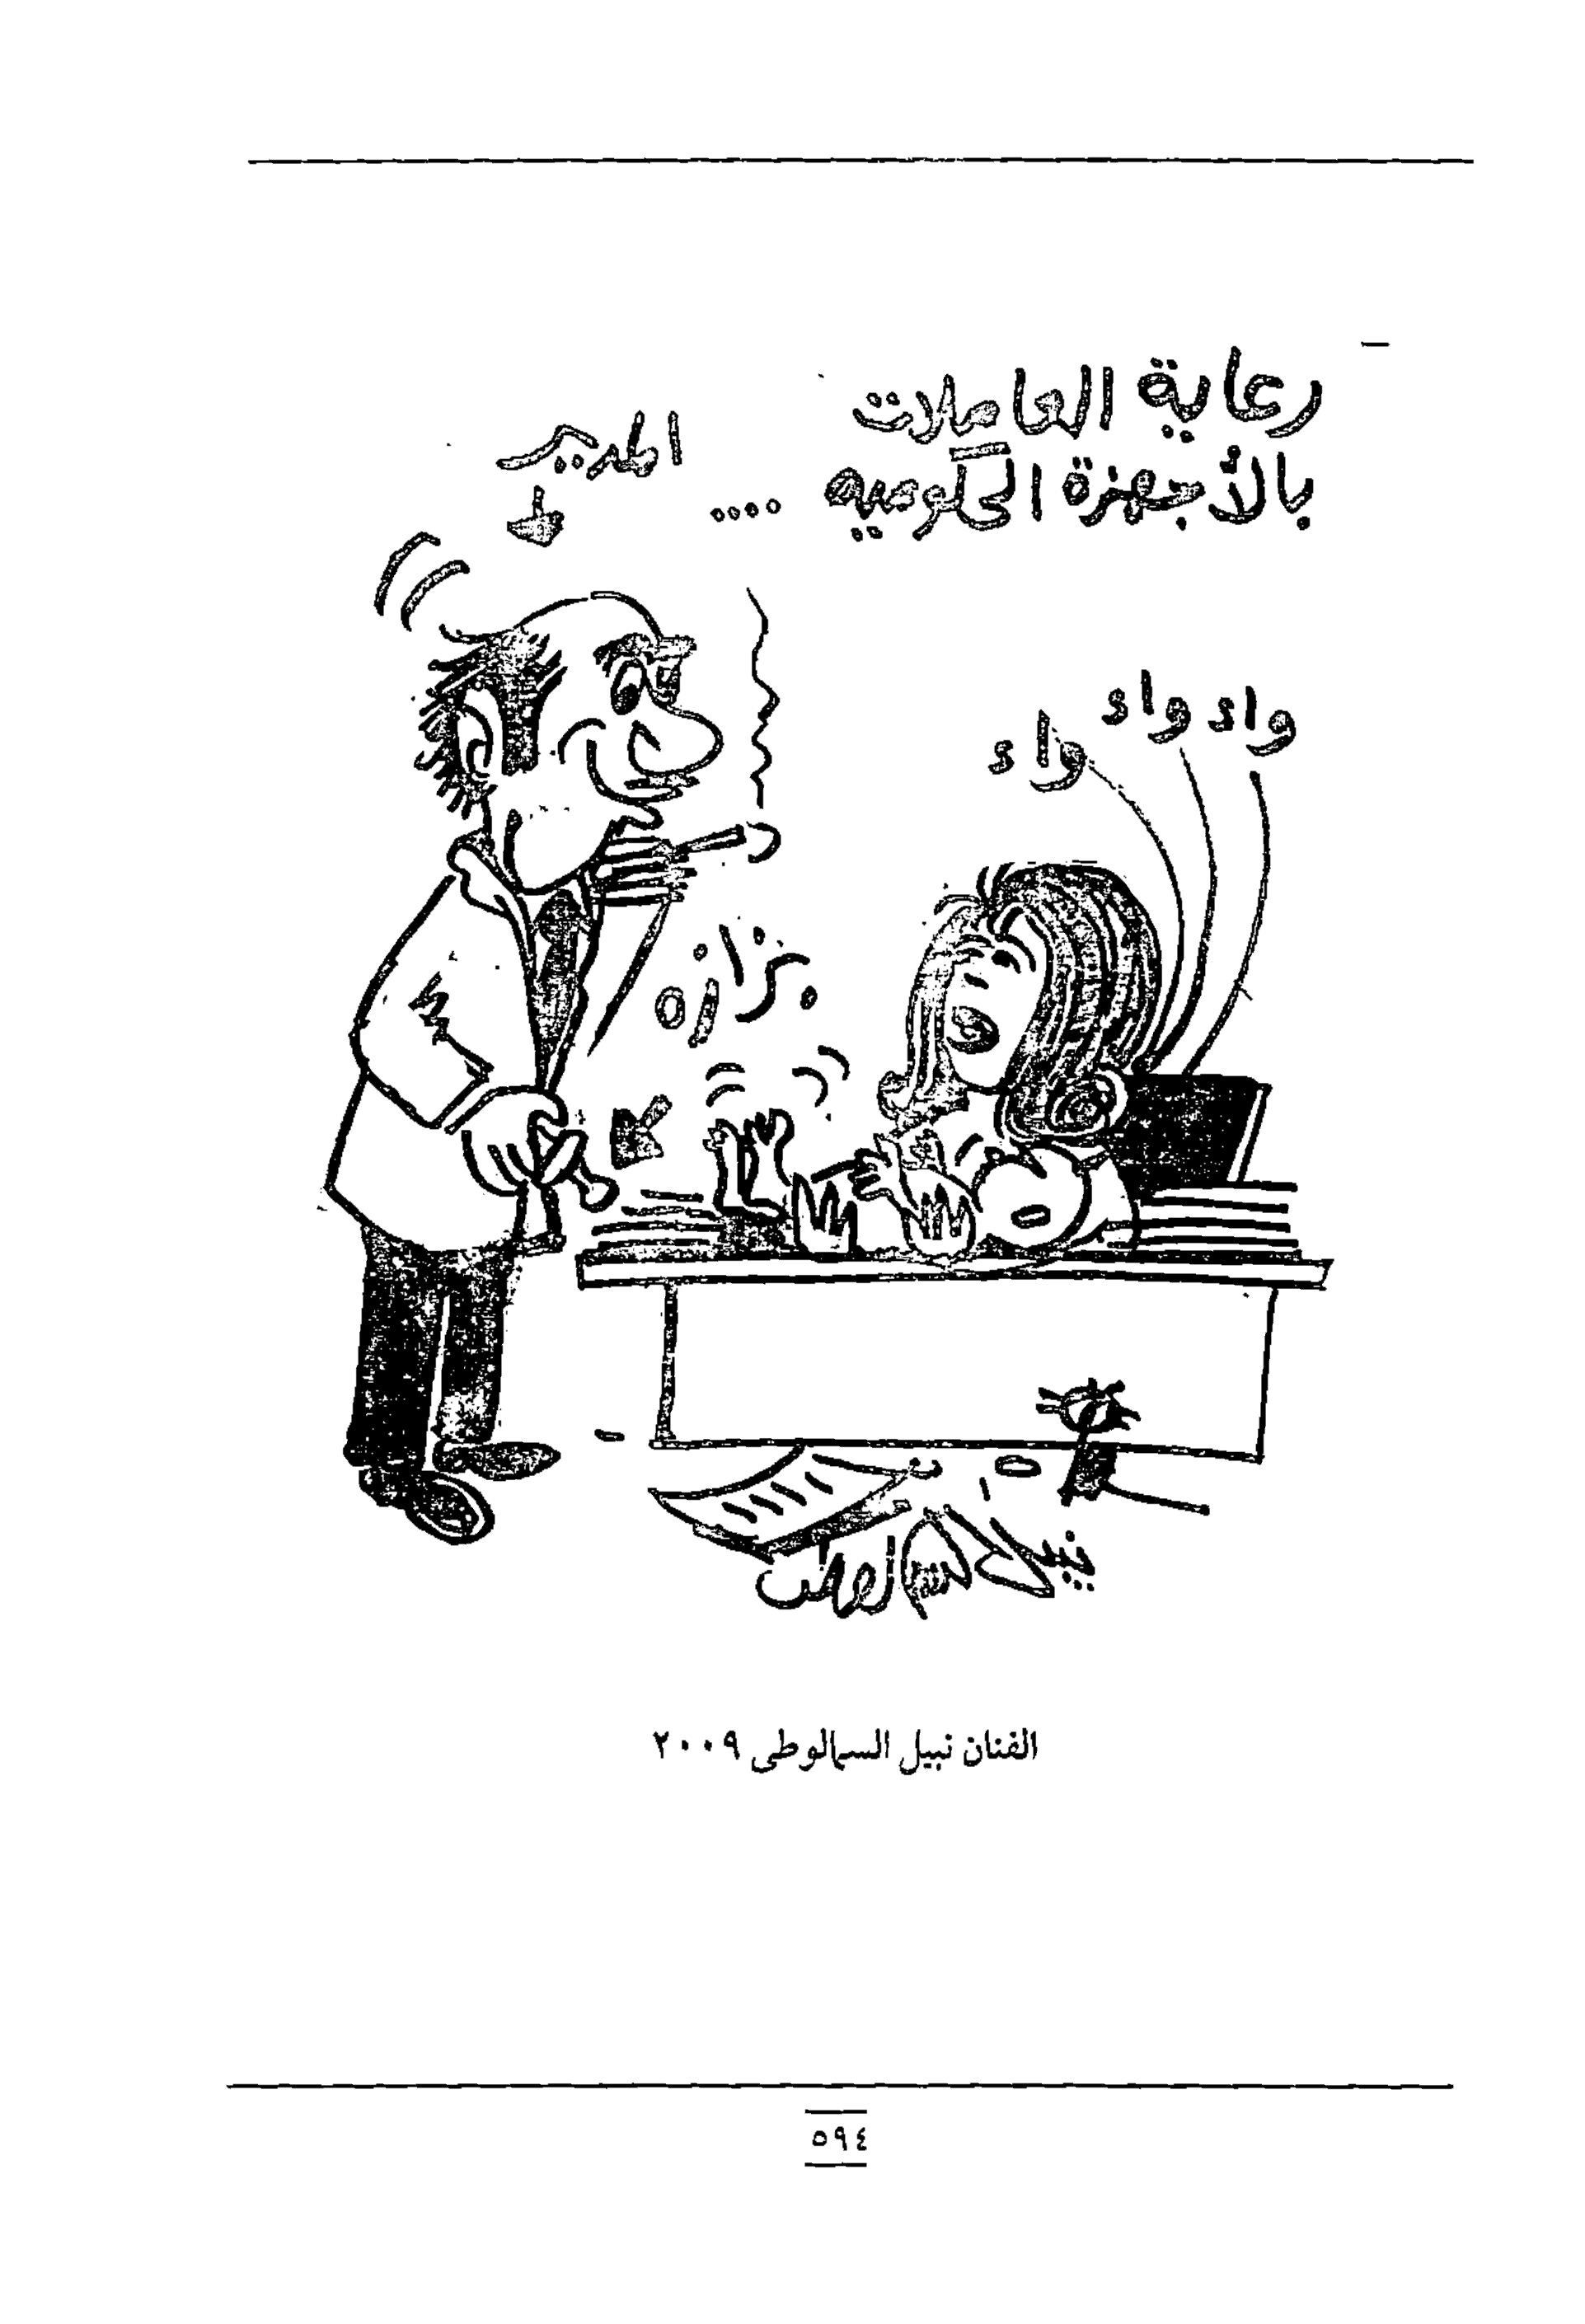 رعاية العاملات
بالأجهزة الحكوميه ....
المدير
واء واء واء
بزازه
نبيل السمالوطى
الفنان نبيل السمالوطى ٢٠٠٩
٥٩٤